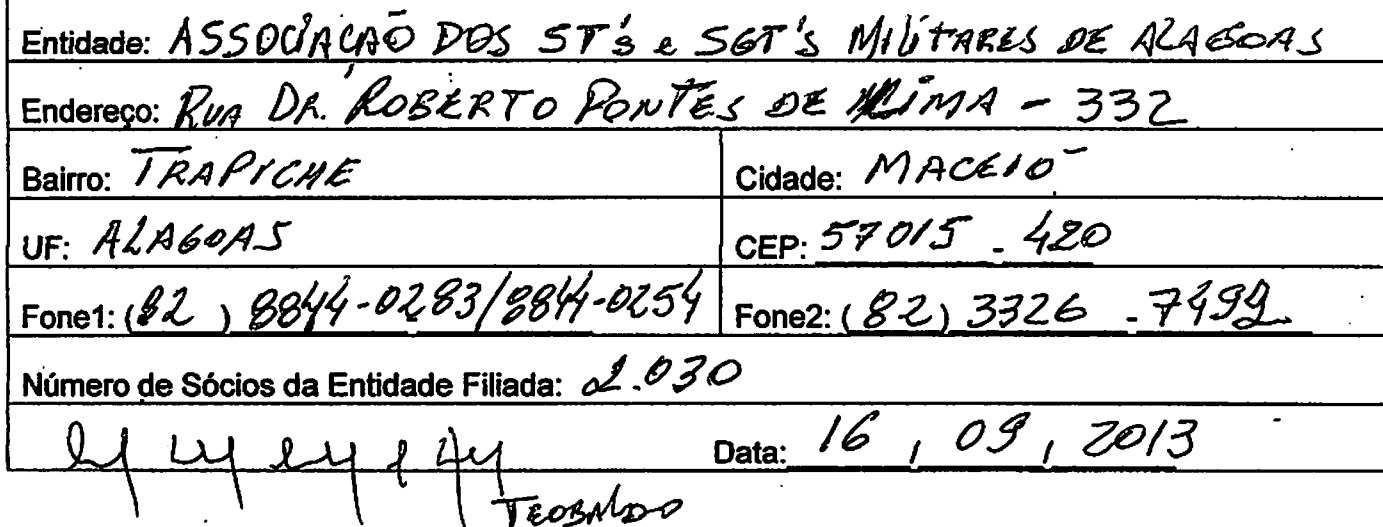 Entidade: ASSOCIAÇÃO DOS ST's e SGT's MILITARES DE ALAGOAS
Endereço: RUA DR. ROBERTO PONTES DE LIMA - 332
Bairro: TRAPICHE Cidade: MACEIÓ
UF: ALAGOAS CEP: 57015-420
Fone1: (82) 8844-0283/8844-0254 Fone2: (82) 3326-7499
Número de Sócios da Entidade Filiada: 2.030
Data: 16, 09, 2013
TEOBALDO